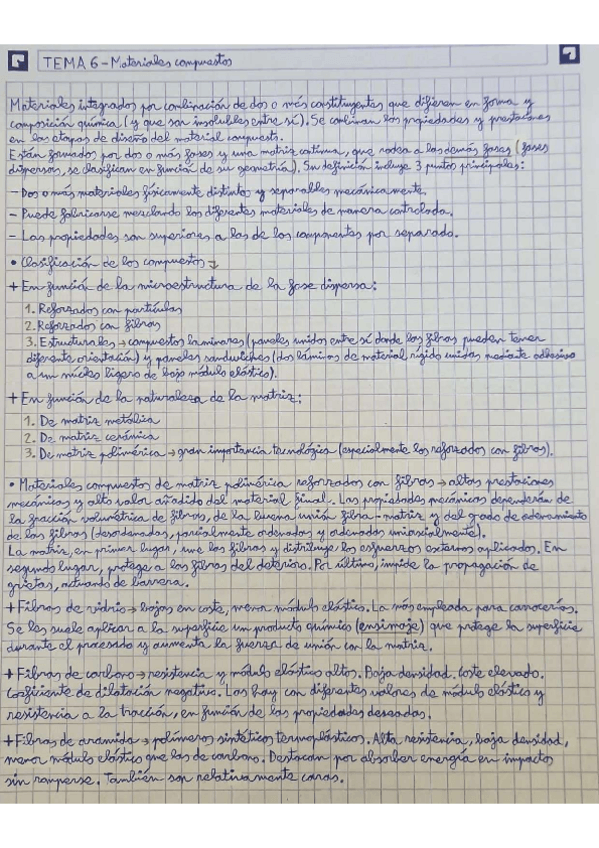 TEMA 6 - Materiales compuestos
Materiales integrados por combinación de dos o más constituyentes que difieren en forma y
composición química (y que son insolubles entre sí). Se combinan las propiedades y prestaciones
en las etapas de diseño del material compuesto.
Están formados por dos o más fases y una matriz continua, que rodea a las demás fases (fases
dispersas, se clasifican en función de su geometría). Su definición incluye 3 puntos principales:
- Dos o más materiales físicamente distintos y separables mecánicamente.
- Puede fabricarse mezclando los diferentes materiales de manera controlada.
- Las propiedades son superiores a las de los componentes por separado.
• Clasificación de los compuestos →
+ En función de la microestructura de la fase dispersa:
1. Reforzados con partículas
2. Reforzados con fibras
3. Estructurales → compuestos laminares (paneles unidos entre sí donde las fibras pueden tener
diferente orientación) y paneles sandwiches (dos láminas de material rígido unidas mediante adhesivo
a un núcleo ligero de bajo módulo elástico).
+ En función de la naturaleza de la matriz:
1. De matriz metálica
2. De matriz cerámica
3. De matriz polimérica → gran importancia tecnológica (especialmente los reforzados con fibras).
• Materiales compuestos de matriz polimérica reforzados con fibras → altas prestaciones
mecánicas y alto valor añadido del material final. Las propiedades mecánicas dependerán de
la fracción volumétrica de fibras, de la buena unión fibra-matriz y del grado de ordenamiento
de las fibras (desordenadas, parcialmente ordenadas y ordenadas uniaxialmente).
La matriz, en primer lugar, une las fibras y distribuye los esfuerzos externos aplicados. En
segundo lugar, protege a las fibras del deterioro. Por último, impide la propagación de
grietas, actuando de barrera.
+ Fibras de vidrio → bajas en coste, menor módulo elástico. La más empleada para carrocerías.
Se les suele aplicar a la superficie un producto químico (ensimaje) que protege la superficie
durante el procesado y aumenta la fuerza de unión con la matriz.
+ Fibras de carbono → resistencia y módulo elástico altos. Baja densidad. Coste elevado.
Coeficiente de dilatación negativo. Las hay con diferentes valores de módulo elástico y
resistencia a la tracción, en función de las propiedades deseadas.
+ Fibras de aramida → polímeros sintéticos termoplásticos. Alta resistencia, baja densidad,
menor módulo elástico que las de carbono. Destacan por absorber energía en impactos
sin romperse. También son relativamente caras.